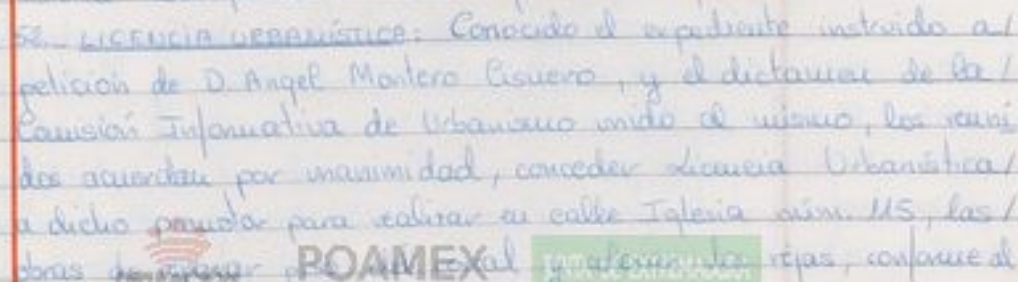 52.- LICENCIA URBANÍSTICA: Conocido el expediente instruido a/
petición de D. Angel Montero Cisuero, y el dictamen de la/
Comisión Informativa de Urbanismo unido al mismo, los reuni
dos acuerdan por unanimidad, conceder Licencia Urbanística/
a dicho promotor para realizar en calle Iglesia núm. 115, las/
obras de POAMEX al y rejas, conforme al